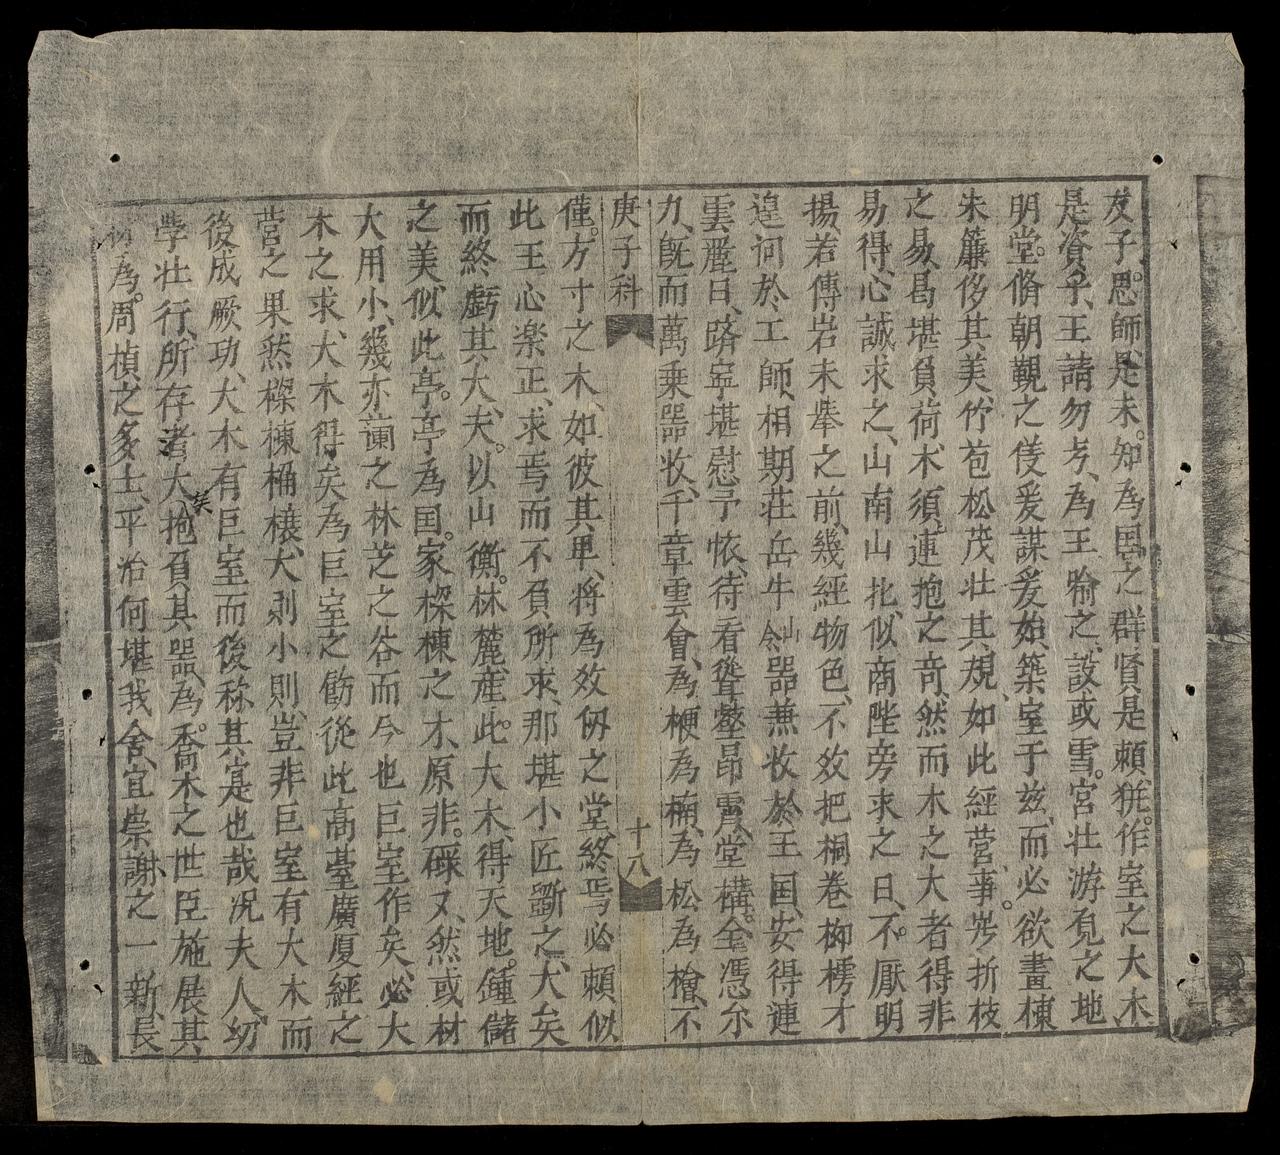 友子思師是未知為国之群賢是賴�ǁ作室之大木
是資乎王請勿考為王喻之設或雪宮壮游覓之地
明堂脩朝覲之俊爰謀爰始築室于兹而必欲畫棟
朱簾侈其美竹苞松茂壮其規如此經营事𠀋折枝
之易曷堪負荷木須連抱之奇然而木之大者得非
易得心誠求之山南山北似商陛旁求之日不厭明
揚若傅岩未舉之前幾經物色不效把桐巻柳楞才
遑问於工師相期荘岳牛山合器兼收於王国安得連
雲蔽日路寧堪慰予懷待看聳壑昂霄堂構全憑尔
九既而萬乗器收千章雲會為梗為楠為松為檜不
庚子科
十八
僅方寸之木如彼其卑将為效仞之堂終焉必頼似
此王心楽正求焉而不負所求那堪小匠斵之大矣
而終虧其大夫以山衡林麓産此大木得天地鍾儲
之美似此亭亭為国家樑棟之木原非碌又然或材
大用小幾亦谰之林芝之谷而今也巨室作矣必大
木之求大木得矣為巨室之勷從此高䑓廣厦經之
营之果然樑棟桷榱大剥小則豈非巨室有大木而
後成厥功大木有巨室而後称其是也哉况夫人幼
学壮行所存者大矣抱負其器為喬木之世臣施展其
材為周楨之多士平治何堪我舍宜崇謝之一新長